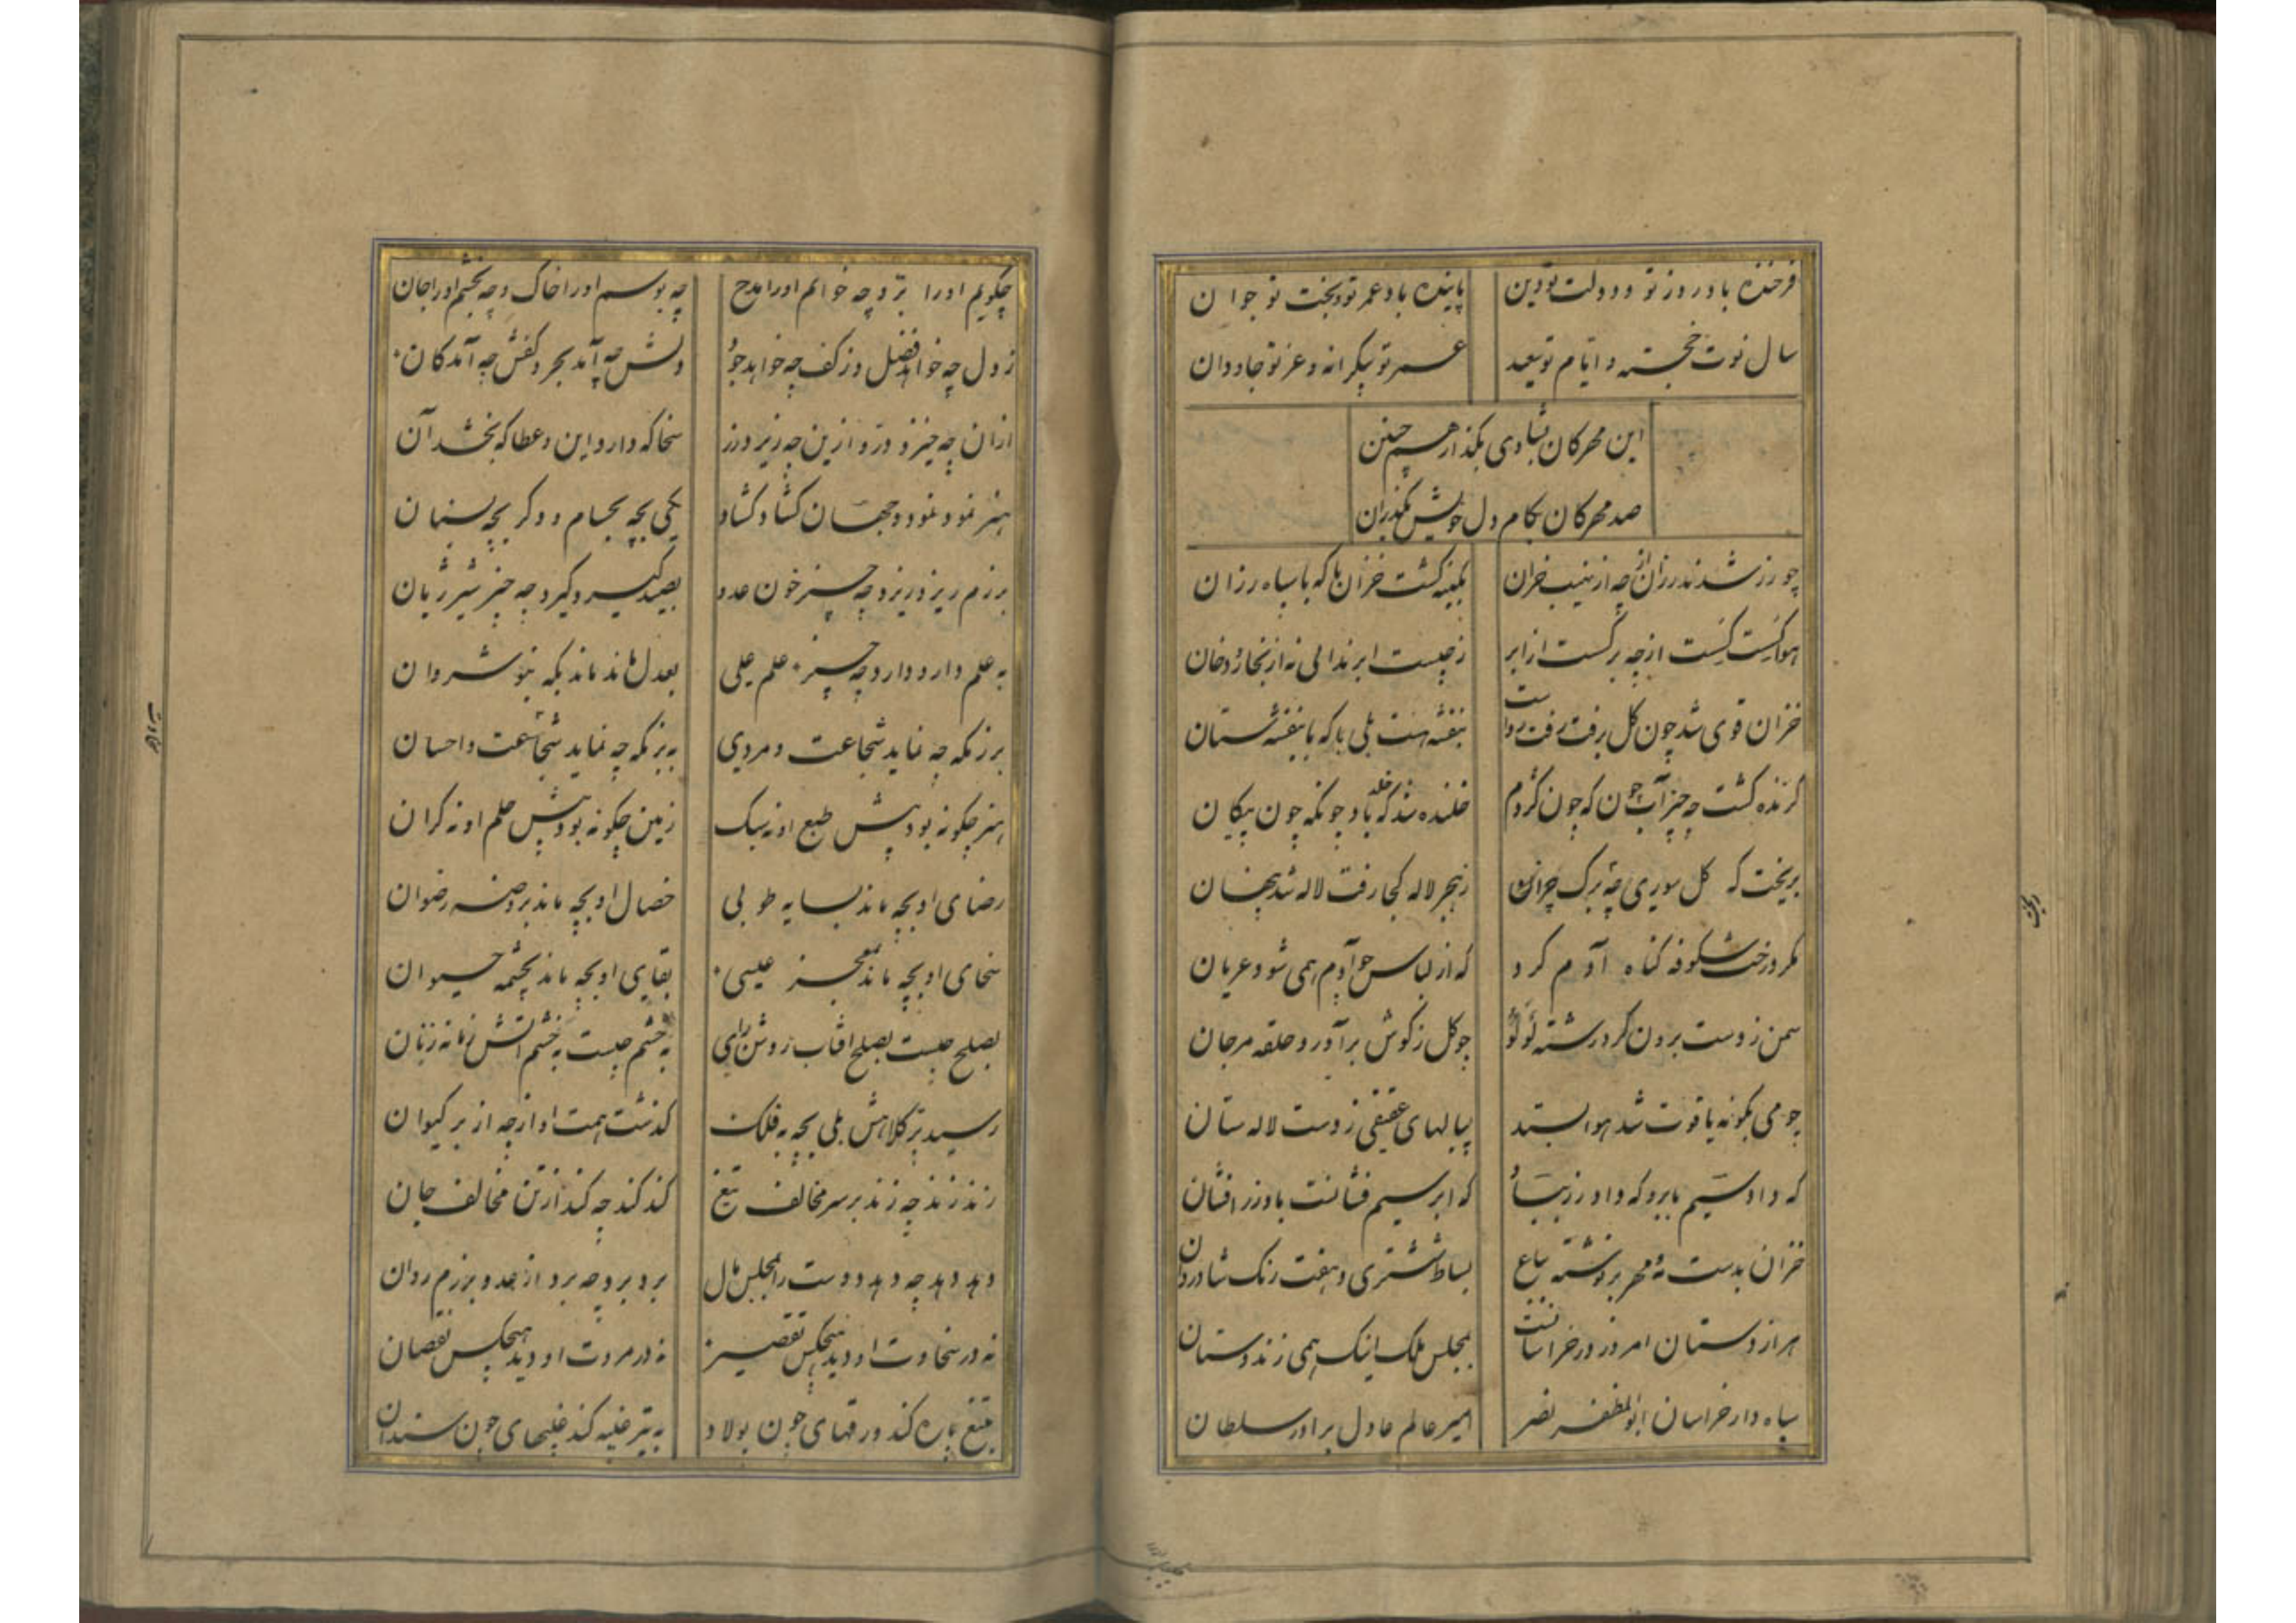 فرخنده باد روز تو و دولت تو دین پاینده باد عمر تو و بخت تو جوان
سال نوت خجسته و ایام تو سعید عمر تو بیکرانه و عز تو جاودان
این مهرکان بشادی بگذار همچنین
صد مهرکان بکام دل خویش بگذران
چو زر شدند رزان از چه از نهیب خزان بکینه کشت خزان با که با سپاه رزان
هوا کسست کسست از چه بر کسست از ابر ز چیست ابر ندانی نه از بخار و دخان
خزان قوی شد چون کل برفت رفت رواست بنفشه هست بلی با که با بنفشه ستان
کزنده کشت چه چیز آب چون که چون کژدم خلنده شد که باد چونکه چون پیکان
بریخت که کل سوری چه برک چرا ز هجر لاله کجا رفت لاله شد پنهان
مکر درخت شکوفه کناه آدم کرد که از لباس چو آدم همی شود عریان
سمن ز دست برون کرد رشته لؤلؤ چو کل ز کوش برآورد حلقه مرجان
چو می بکونه یاقوت شد هوا بستد پیالهای عقیقی ز دست لاله ستان
که داد سیم بابر و که داد زر بباد که ابر سیم فشانست باد زر افشان
خزان بدست مه مهر برنوشته بباغ بساط ششتری و هفت رنک شادروان
هزاردستان امروز در خراسانست بمجلس ملک اینک همی زند دستان
سپاه دار خراسان ابوالمظفر نصر امیر عالم عادل برادر سلطان
چکویم اورا بزد چه خوانم اورا مدح چه بوسم اورا خاک و چه بخشم اورا جان
ز دل چه خواهد فضل و ز کف چه خواهد جود دلش چه آمد بحر و کفش چه آمد کان
ازان چه خیزد در و ازین چه ریزد زر سخا که دارد این و عطا که بخشد آن
هنر نمود نمود و جهان کشاد کشاد یکی بچه بحسام و دکر بچه بسنان
برزم ریزد ریزد چه چیز خون عدو بصید کیرد کیرد چه چیز شیر ژیان
به علم دارد دارد چه چیز علم علی بعدل ماند ماند بکه بنوشروان
برزمکه چه نماید شجاعت و مردی به بزمکه چه نماید شجاعت و احسان
هنر چکونه بود پیش طبع او نه سبک زمین چکونه بود پیش حلم او نه کران
رضای او بچه ماند بسایه طوبی خصال او بچه ماند بروضه رضوان
سخای او بچه ماند بمعجز عیسی بقای او بچه ماند بچشمه حیوان
بصلح چیست بصلح افتاب روشن رای به خشم چیست به خشم اتش زمانه زبان
رسید برکلاهش بلی بچه به فلک کذشت همت او از چه از بر کیوان
زند زند چه زند بر سر مخالف تیغ کند کند چه کند از تن مخالف جان
دهد دهد چه دهد دوست را بمجلس مال برد برد چه برد از عدو برزم روان
نه در سخاوت او دید هیچکس تقصیر نه در مروت او دید هیچکس نقصان
بتیغ پاره کند درقهای چون پولاد به تیر غیبه کند غیبهای چون سندان